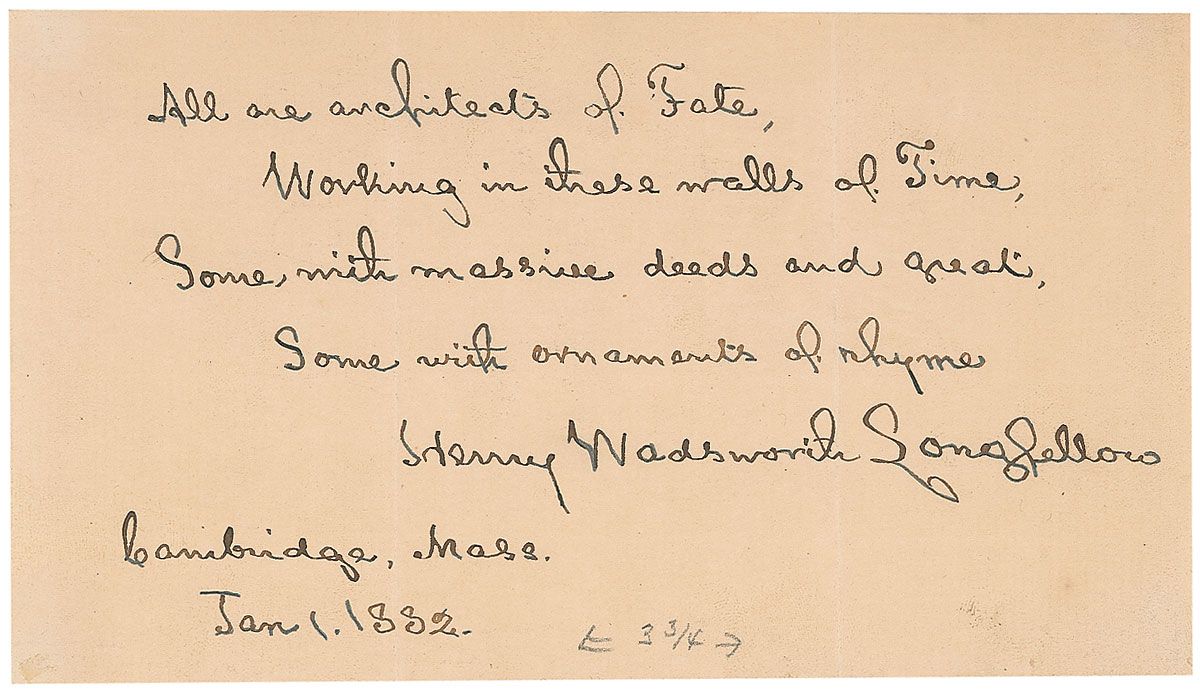 All are architects of Fate,
Working in these walls of Time,
Some, with massive deeds and great,
Some with ornaments of rhyme
Henry Wadsworth Longfellow
Cambridge, Mass.
Jan 1. 1882.
← 3 3/4 →